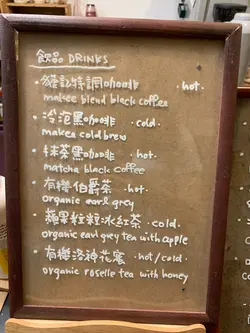 飲品 DRINKS
・貓記特調咖啡 ・hot・
makee blend black coffee
・冷泡黑咖啡 ・cold・
makea cold brew
・抹茶黑咖啡 ・hot・
matcha black coffee
・有機伯爵茶 ・hot・
organic earl grey
・蘋果粒粒冰紅茶・cold・
organic earl grey tea with apple
・有機洛神花蜜 ・hot/cold・
organic roselle tea with honey